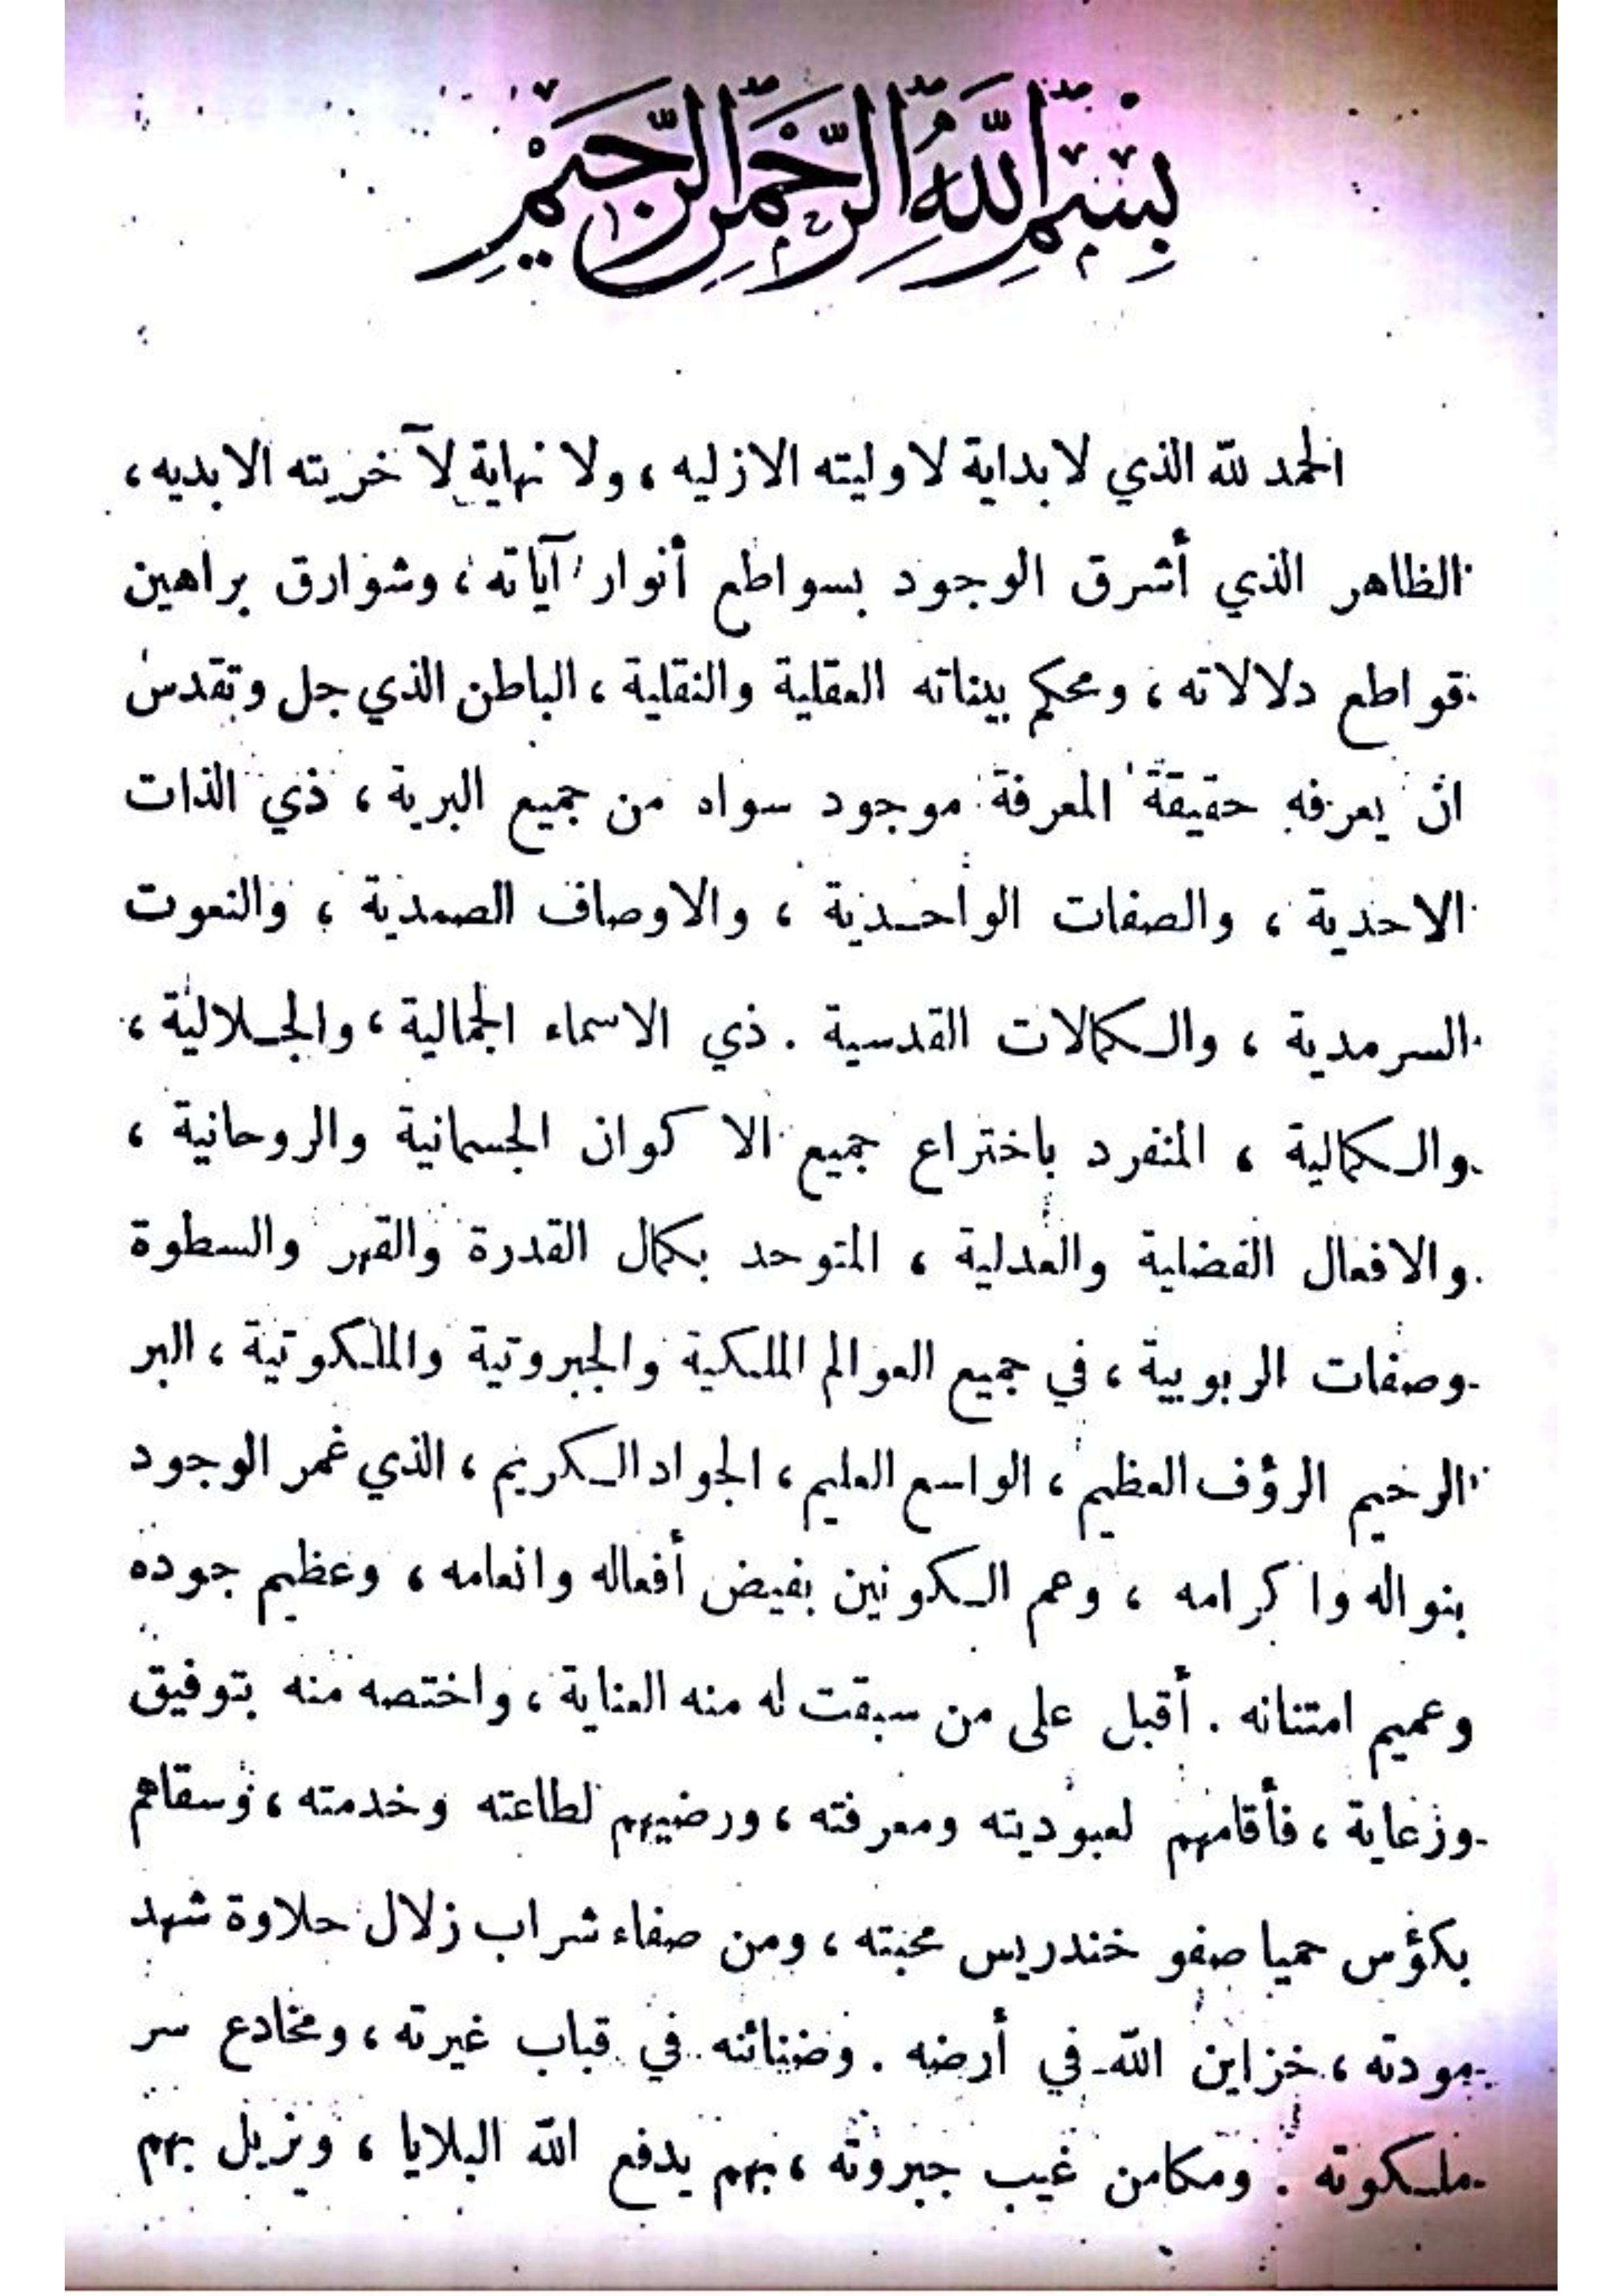 بِسْمِ اللَّهِ الرَّحْمَنِ الرَّحِيمِ
الحمد لله الذي لا بداية لاوليته الازليه ، ولا نهاية لآخريته الابديه ،
الظاهر الذي أشرق الوجود بسواطع أنوار آياته ، وشوارق براهين
قواطع دلالاته ، ومحكم بيناته العقلية والنقلية ، الباطن الذي جل وتقدس
ان يعرفه حقيقة المعرفة موجود سواه من جميع البرية ، ذي الذات
الاحدية ، والصفات الواحدية ، والاوصاف الصمدية ، والنعوت
السرمدية ، والكمالات القدسية . ذي الاسماء الجمالية ، والجلالية ،
والكمالية ، المنفرد باختراع جميع الاكوان الجسمانية والروحانية ،
والافعال الفضلية والعدلية ، المتوحد بكمال القدرة والقهر والسطوة
وصفات الربوبية ، في جميع العوالم الملكية والجبروتية والملكوتية ، البر
الرحيم الرؤف العظيم ، الواسع العليم ، الجواد الكريم ، الذي غمر الوجود
بنواله واكرامه ، وعم الكونين بفيض أفعاله وانعامه ، وعظيم جوده
وعميم امتنانه . أقبل على من سبقت له منه العناية ، واختصه منه بتوفيق
ورعاية ، فأقامهم لعبوديته ومعرفته ، ورضيهم لطاعته وخدمته ، وسقاهم
بكؤس حميا صفو خندريس محبته ، ومن صفاء شراب زلال حلاوة شهد
مودته ، خزاين الله في أرضه . وضنائنه في قباب غيرته ، ومخادع سر
ملكوته . ومكامن غيب جبروته ، بهم يدفع الله البلايا ، ويزيل بهم